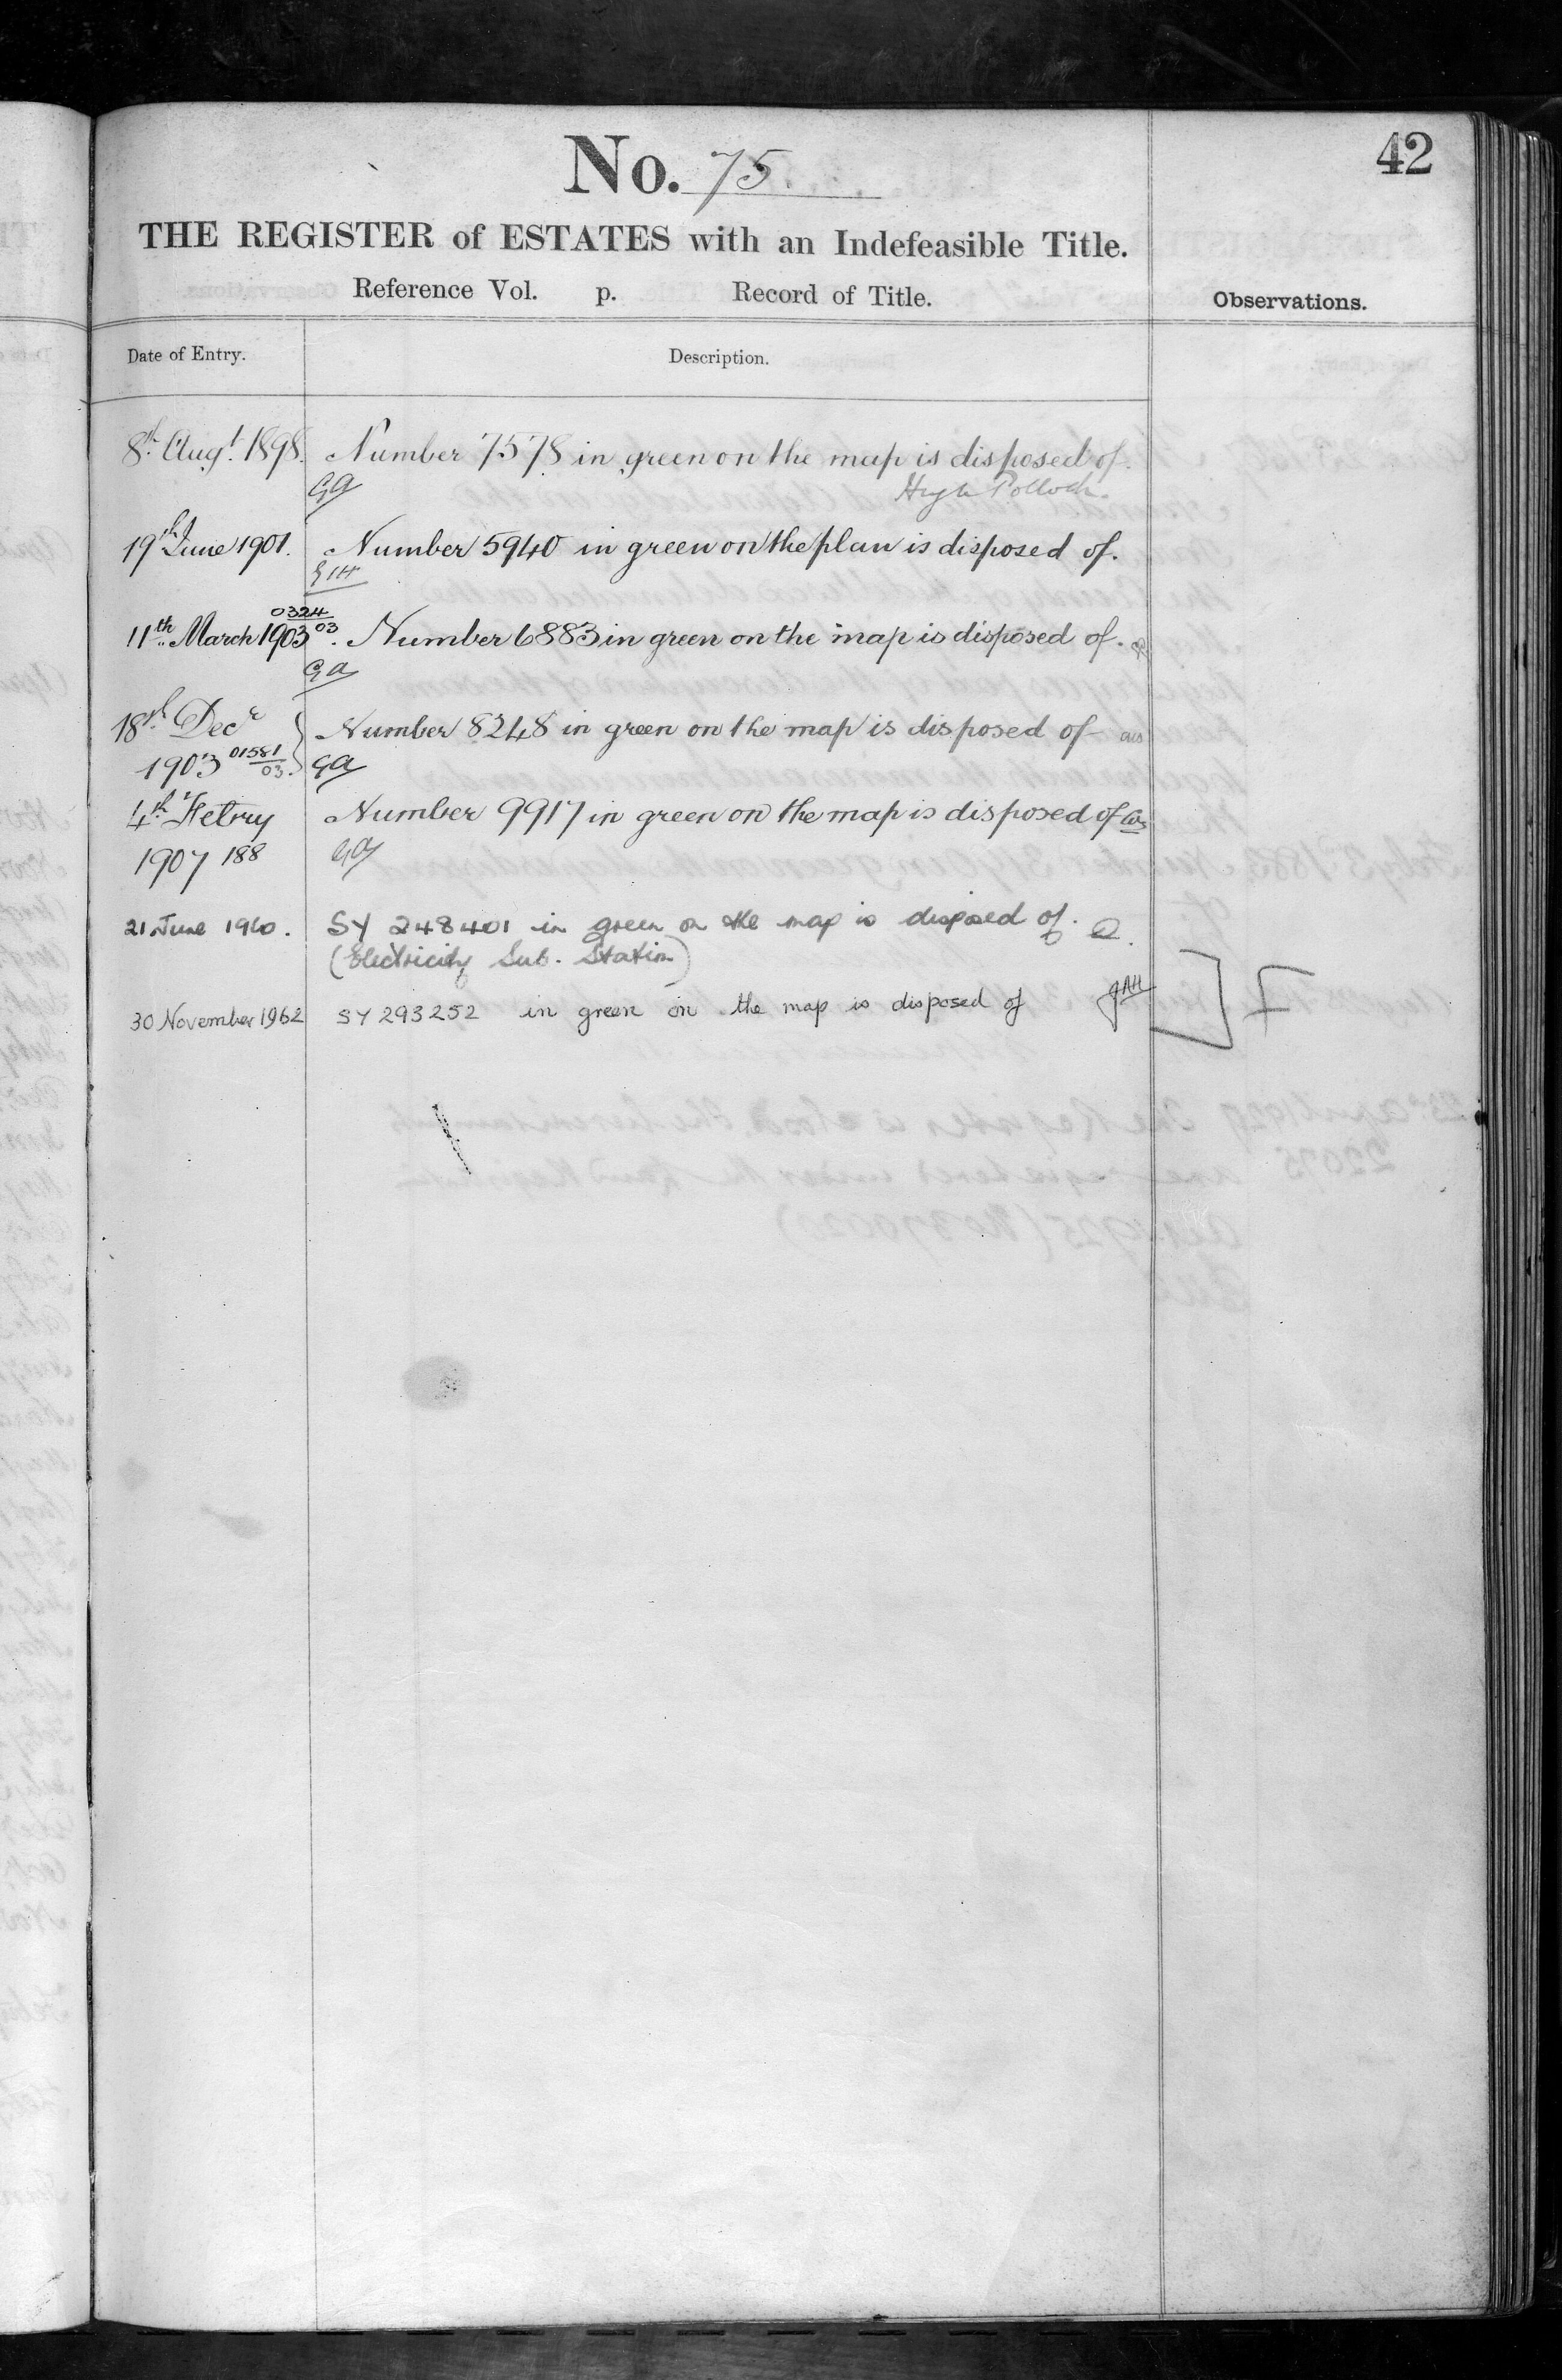 42
No. 75.
THE REGISTER of ESTATES with an Indefeasible Title.
Reference Vol. p. Record of Title.
Observations.
Date of Entry. Description.
8th Augt. 1898. Number 7578 in green on the map is disposed of.
GA Hugh Pollock.
19th June 1901. Number 5940 in green on the plan is disposed of.
0324
11th March 1903 03. Number 6883 in green on the map is disposed of.
GA
18th Decr Number 8248 in green on the map is disposed of
1903 01581/03. GA
4th Febry Number 9917 in green on the map is disposed of
1907 188 GA
21 June 1960. SY 248401 in green on the map is disposed of.
(Electricity Sub. Station)
30 November 1962 SY 293252 in green on the map is disposed of